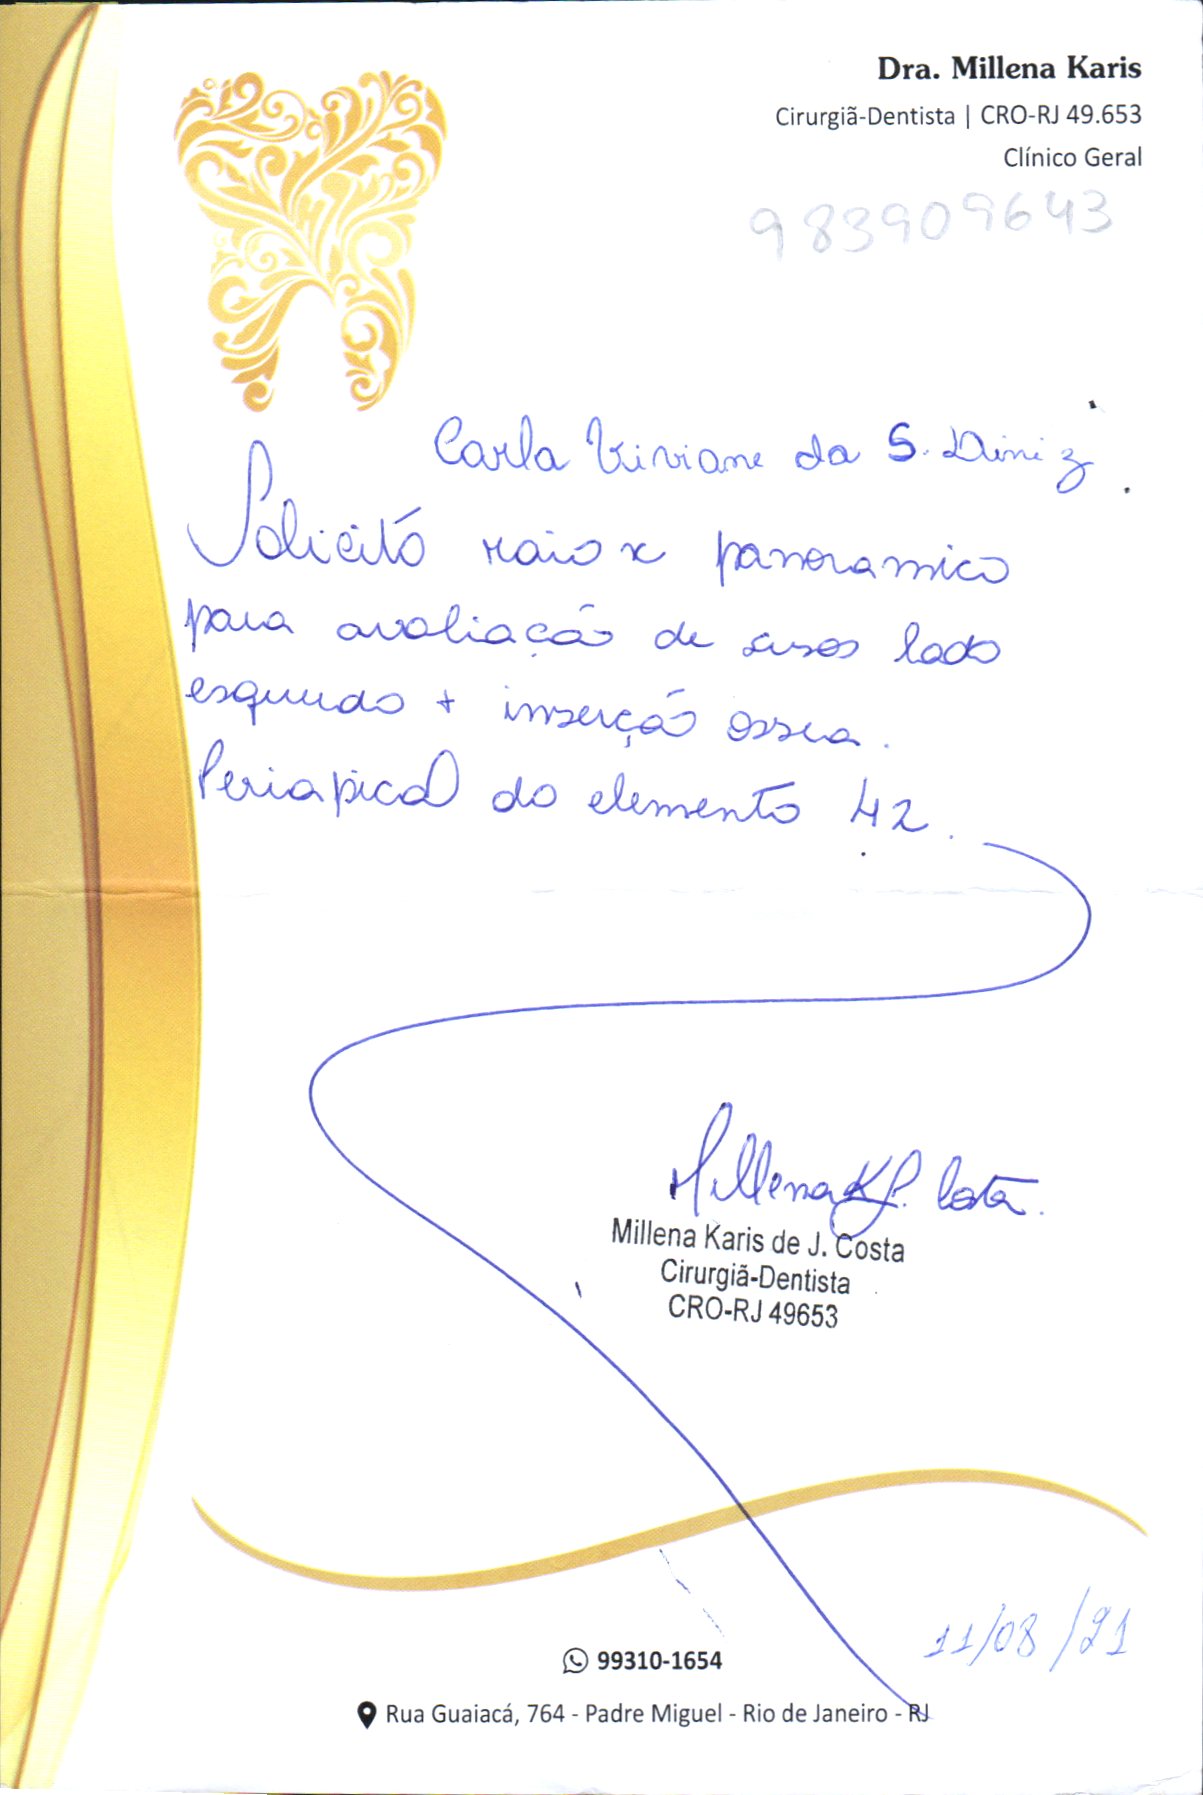 Dra. Millena Karis
Cirurgiã-Dentista | CRO-RJ 49.653
Clínico Geral
983909643
Carla Viviane da S. Diniz
Solicito raio x panoramico
para avaliação de sisos lado
esquerdo + inserção ossea.
Periapical do elemento 42.
Millena K J. Costa.
Millena Karis de J. Costa
Cirurgiã-Dentista
CRO-RJ 49653
11/08/21
99310-1654
Rua Guaiacá, 764 - Padre Miguel - Rio de Janeiro - RJ